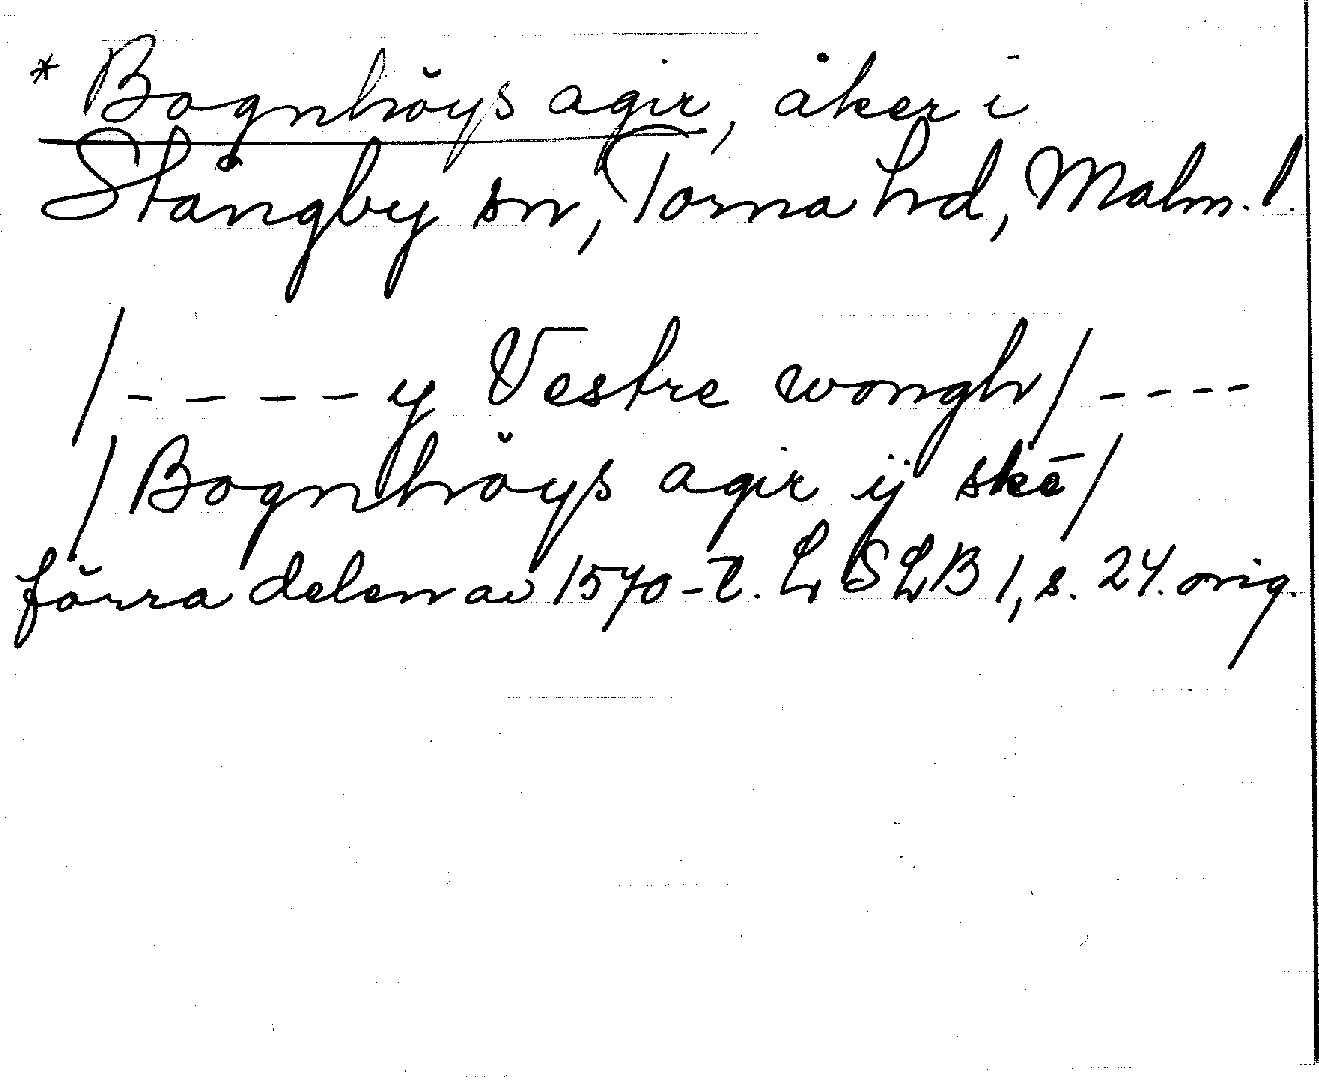 * Bognhöys agir, åker i
Stångby sn, Torna hd, Malm. l.
/ - - - - y Vestre wongh / - - - -
/ Bognhöys agir ij skē /
förra delen av 1570-t. LSLB 1, s. 24. orig.